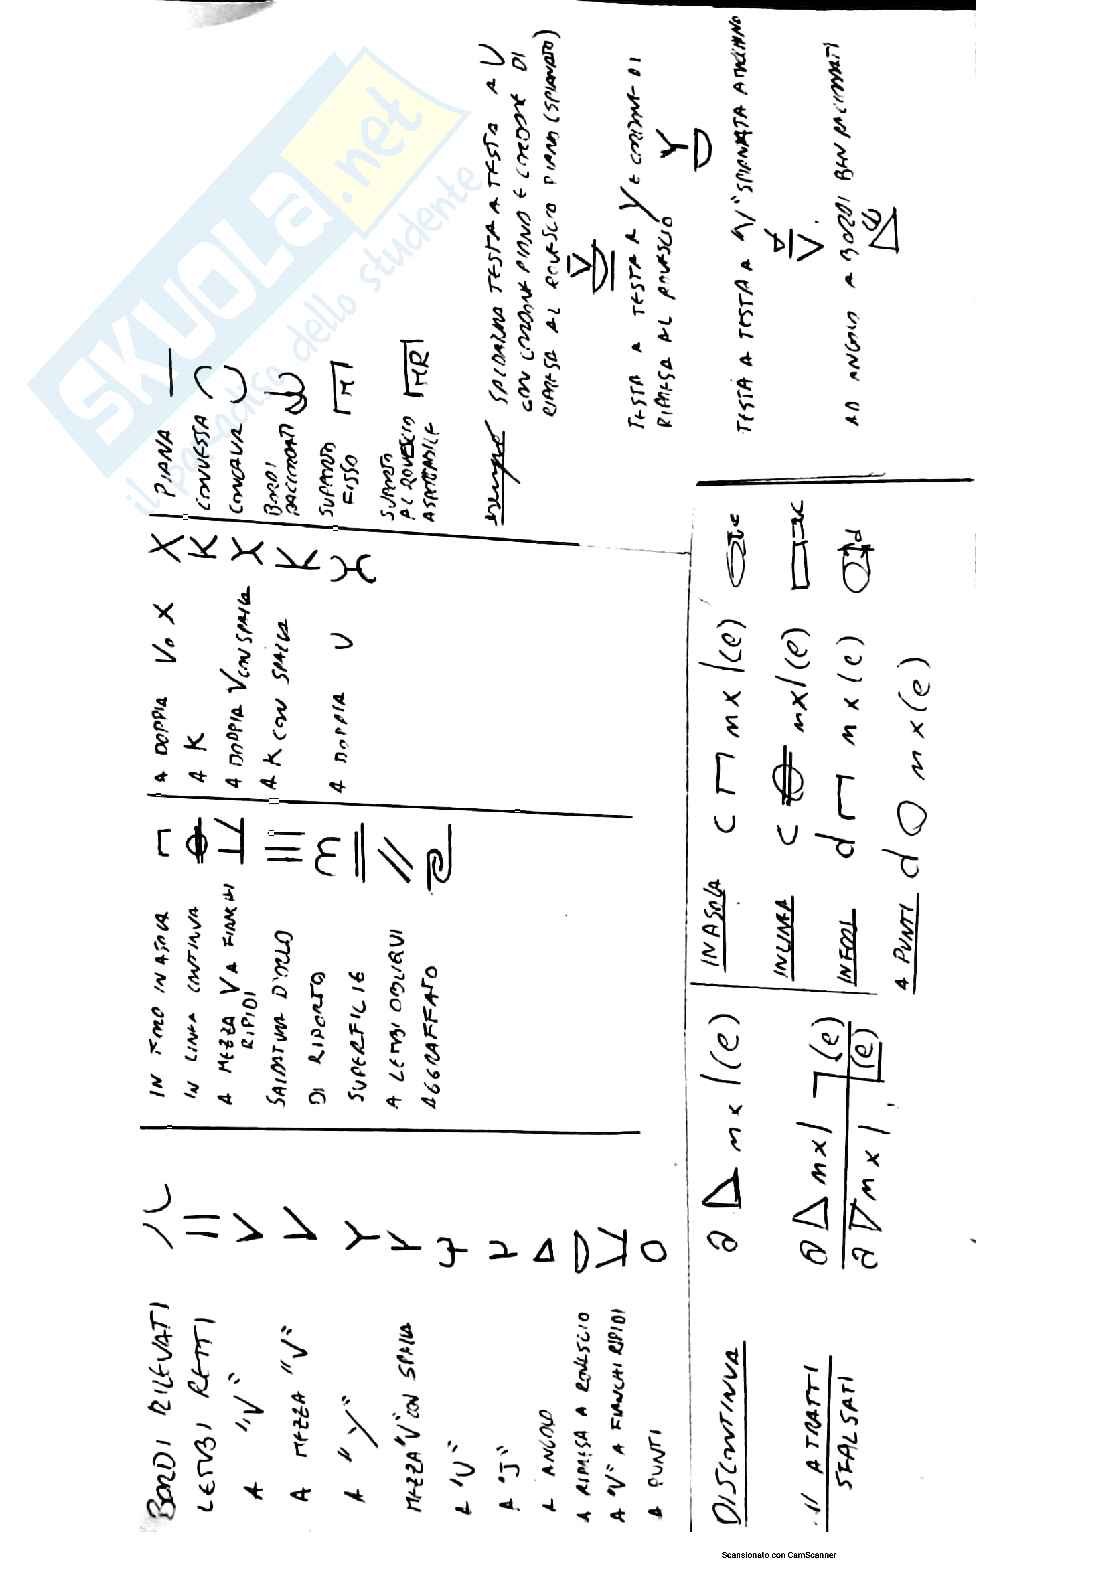 BORDI RILEVATI
LEMBI RETTI
A "V"
A MEZZA "V"
A "Y"
MEZZA "V" CON SPALLA
A "U"
A "J"
A ANGOLO
A RIPRESA A ROVESCIO
A "V" A FIANCHI RIPIDI
A PUNTI
IN FORO IN ASOLA
IN LINEA CONTINUA
A MEZZA V A FIANCHI
RIPIDI
SALDATURA D'ORLO
DI RIPORTO
SUPERFICIE
A LEMBI OBLIQUI
AGGRAFFATO
A DOPPIA V o X
A K
A DOPPIA V CON SPALLA
A K CON SPALLA
A DOPPIA U
PIANA
CONVESSA
CONCAVA
BORDI
RACCORDATI
SUPPORTO
FISSO
M
SUPPORTO
AL ROVESCIO
ASPORTABILE
MR
esempio
SALDATURA TESTA A TESTA A V
CON CORDONE PIANO E CORDONE DI
RIPRESA AL ROVESCIO PIANO (SPIANATO)
TESTA A TESTA A Y E CORDONE DI
RIPRESA AL ROVESCIO
TESTA A TESTA A "V" SPIANATA A MACCHINA
AD ANGOLO A BORDI BEN RACCORDATI
DISCONTINUA
a n x l (e)
" A TRATTI
SFALSATI
a n x l (e)
a n x l (e)
IN ASOLA
c n x l (e)
IN LINEA
c n x l (e)
IN FORI
d n x (e)
A PUNTI
d n x (e)
SKUOLA.net
il paradiso dello studente
Scansionato con CamScanner